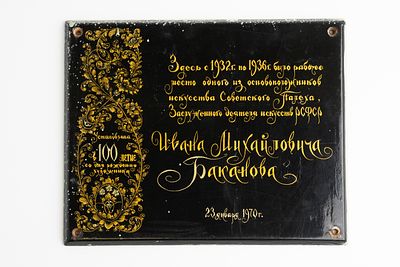 Здесь с 1932г. по 1936г. было рабочее
место одного из основоположников
искусства Советского Палеха,
Заслуженного деятеля искусств РСФСР
Ивана Михайловича
Баканова
23 января 1970г.
Установлена
в 100-летие
со дня рождения
художника